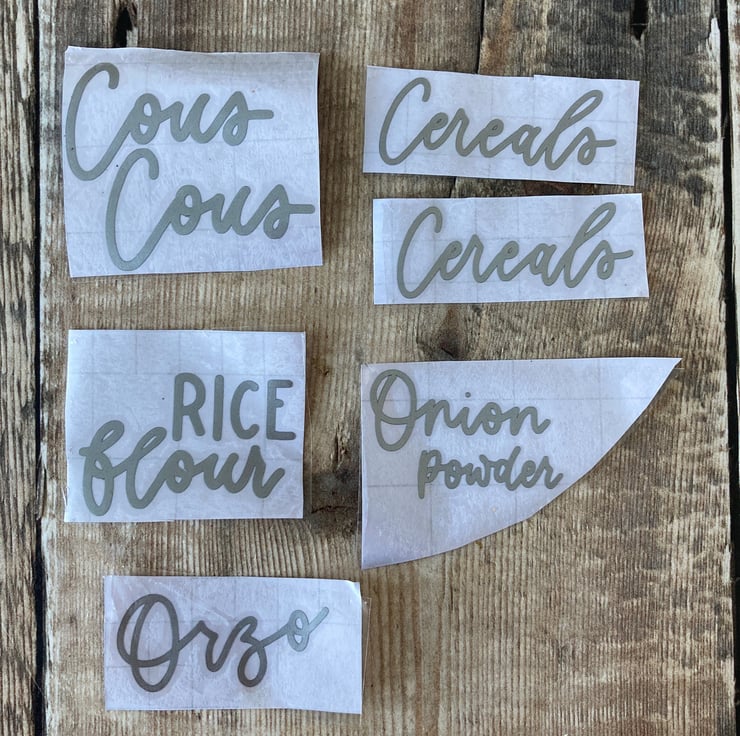 Cous
Cous
Cereals
Cereals
RICE
flour
Onion
powder
Orzo